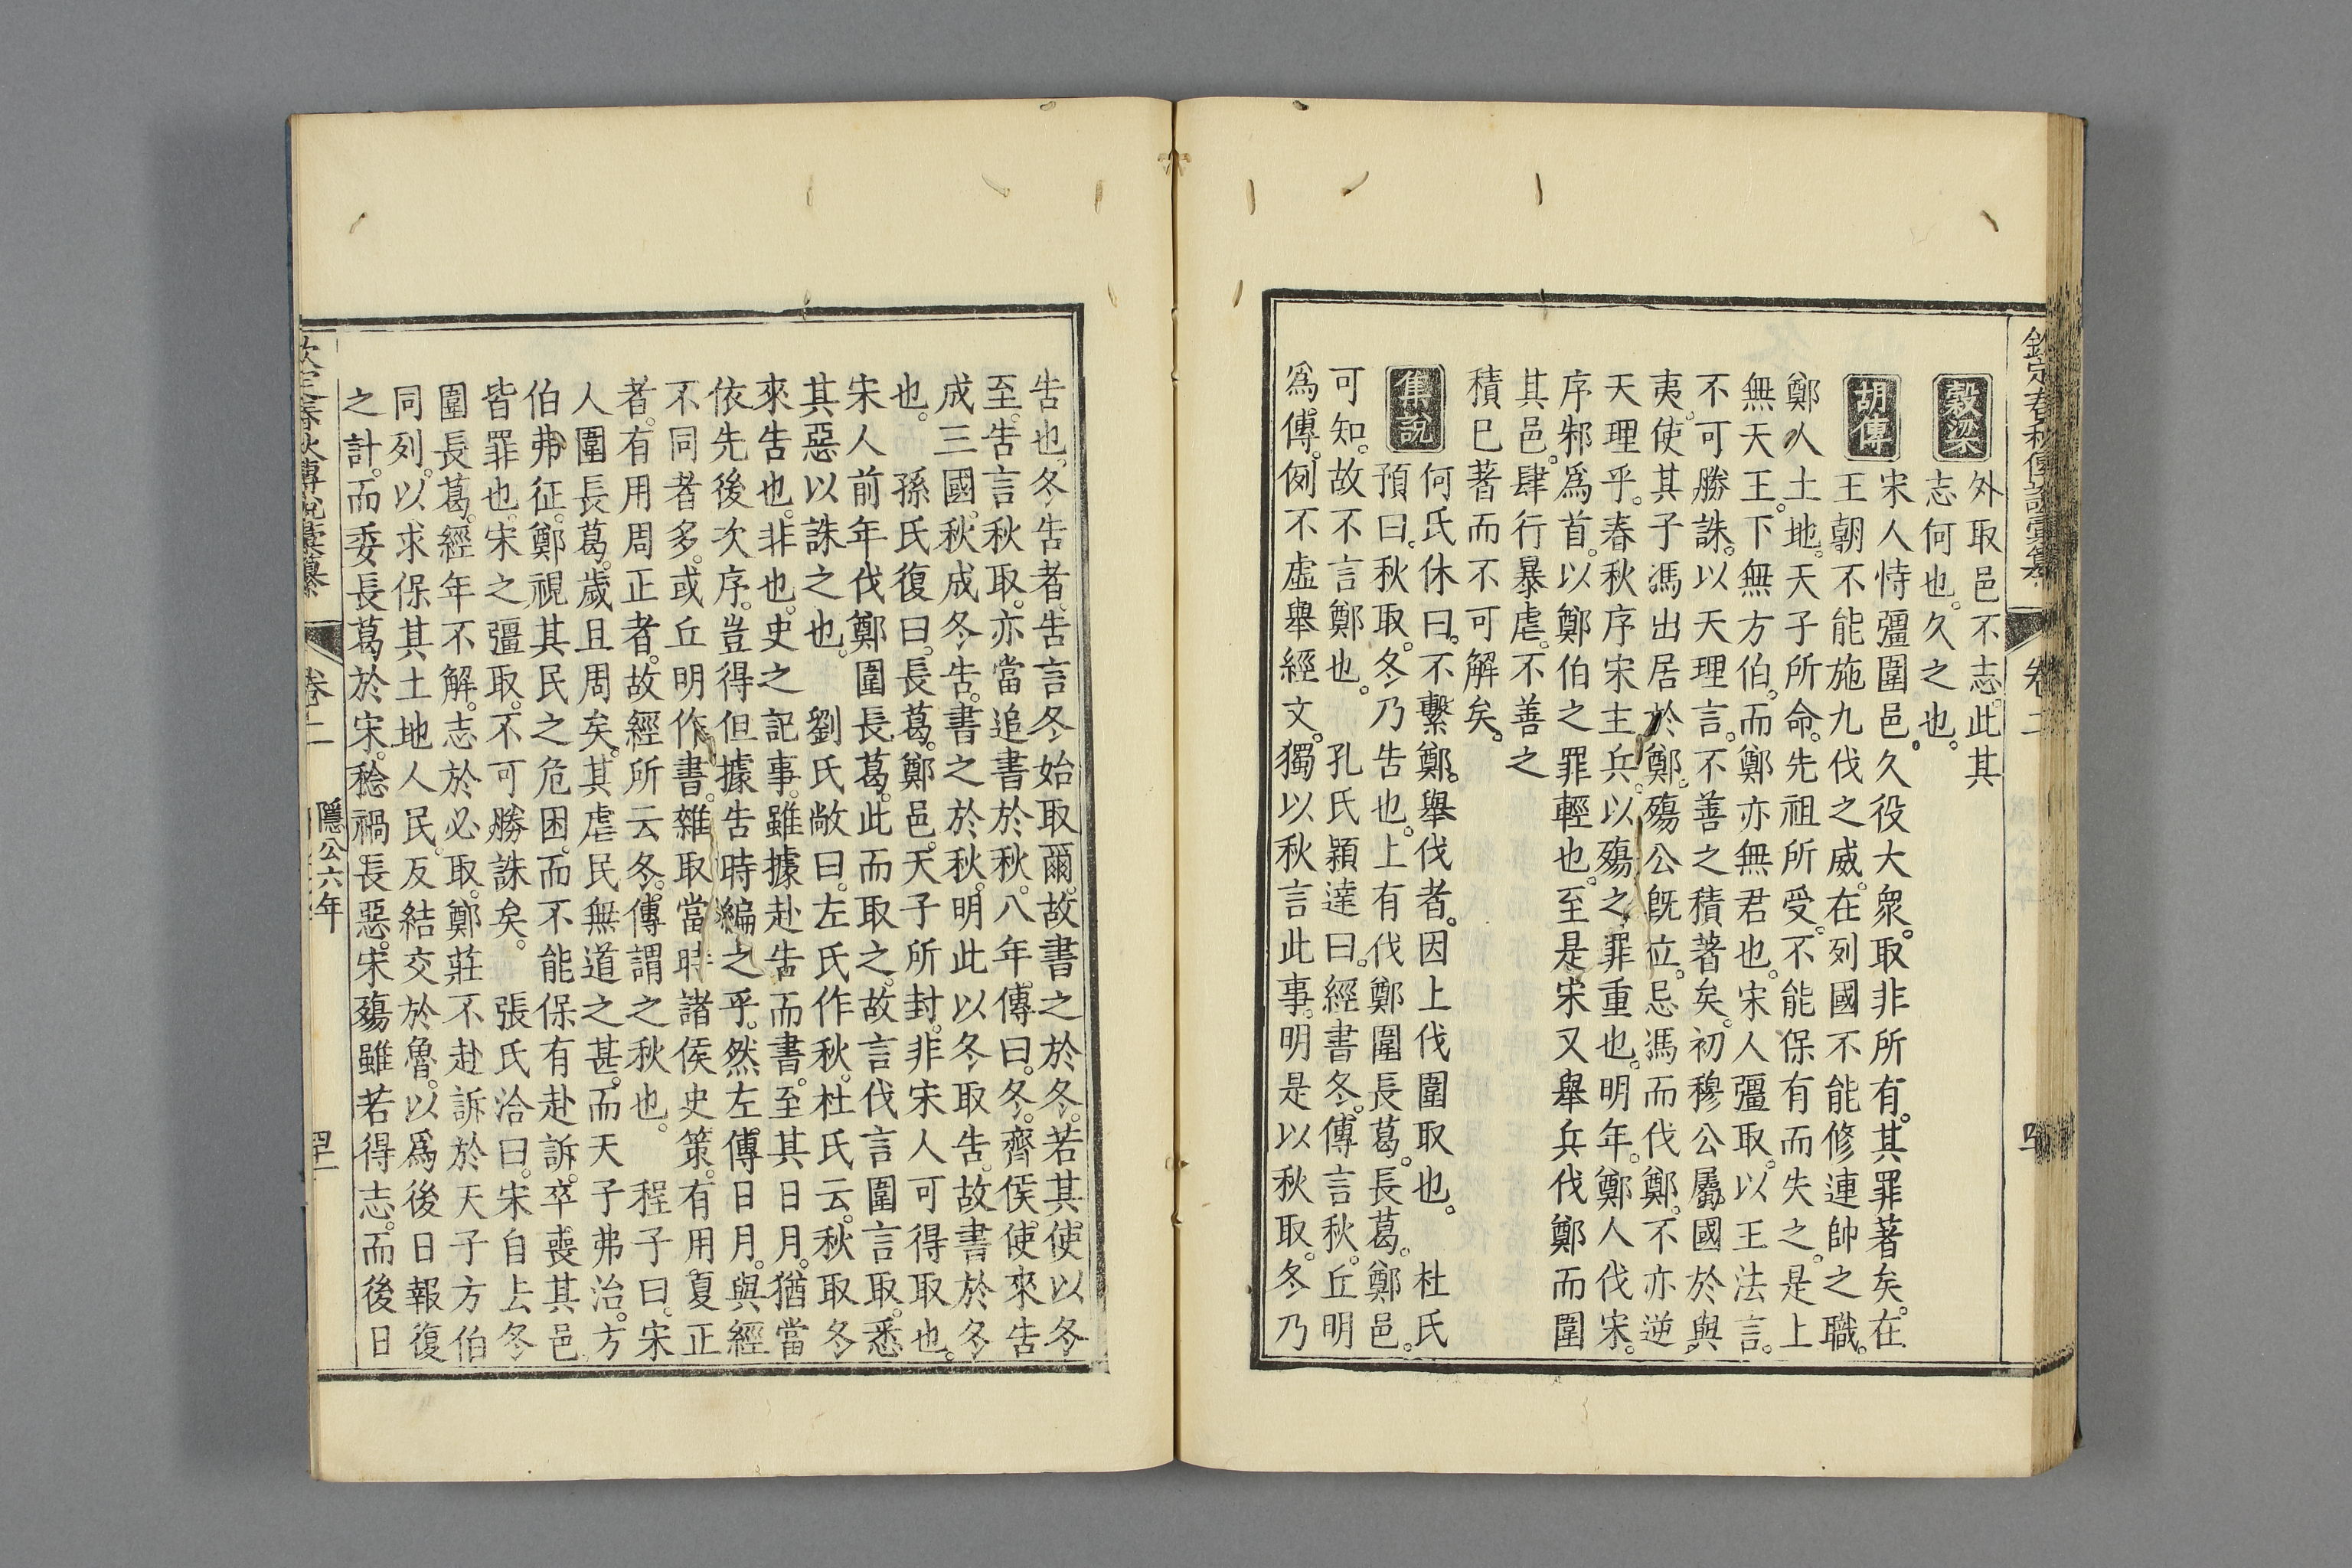 欽定春秋傳說彙纂 卷二
穀梁
外取邑不志。此其
志何也。久之也。
胡傳
宋人恃彊圍邑。久役大衆。取非所有。其罪著矣。在
王朝不能施九伐之威。在列國不能修連帥之職。
鄭人土地。天子所命。先祖所受。不能保有而失之。是上
無天王。下無方伯。而鄭亦無君也。宋人彊取。以王法言。
不可勝誅。以天理言。不善之積著矣。初穆公屬國於與
夷。使其子馮出居於鄭。殤公旣立。忌馮而伐鄭。不亦逆
天理乎。春秋序宋主兵。以殤之罪重也。明年。鄭人伐宋。
序邾爲首。以鄭伯之罪輕也。至是宋又舉兵伐鄭而圍
其邑。肆行暴虐。不善之
積巳著而不可解矣。
集說
何氏休曰。不繫鄭。舉伐者。因上伐圍取也。 杜氏
預曰。秋取。冬乃告也。上有伐鄭圍長葛。長葛。鄭邑。
可知。故不言鄭也。 孔氏穎達曰。經書冬。傳言秋。丘明
爲傳。例不虛舉經文。獨以秋言此事。明是以秋取。冬乃
告也。冬告者。告言冬始取爾。故書之於冬。若其使以冬
至。告言秋取。亦當追書於秋。八年。傳曰。冬。齊侯使來告
成三國。秋成冬告。書之於秋。明此以冬取告。故書於冬
也。 孫氏復曰。長葛。鄭邑。天子所封。非宋人可得取也。
宋人前年伐鄭圍長葛。此而取之。故言伐言圍言取。悉
其惡以誅之也。 劉氏敞曰。左氏作秋。杜氏云。秋取冬
來告也。非也。史之記事。雖據赴告而書。至其日月。猶當
依先後次序。豈得但據告時編之乎。然左傳日月。與經
不同者多。或丘明作書。雜取當時諸侯史策。有用夏正
者。有用周正者。故經所云冬。傳謂之秋也。 程子曰。宋
人圍長葛。歲且周矣。其虐民無道之甚。而天子弗治。方
伯弗征。鄭視其民之危困。而不能保有赴訴。卒喪其邑
皆罪也。宋之彊取。不可勝誅矣。 張氏洽曰。宋自去冬
圍長葛。經年不解。志於必取。鄭莊不赴訴於天子方伯
同列。以求保其土地人民。反結交於魯。以爲後日報復
之計。而委長葛於宋。稔禍長惡。宋殤雖若得志。而後日
卷二 隱公六年